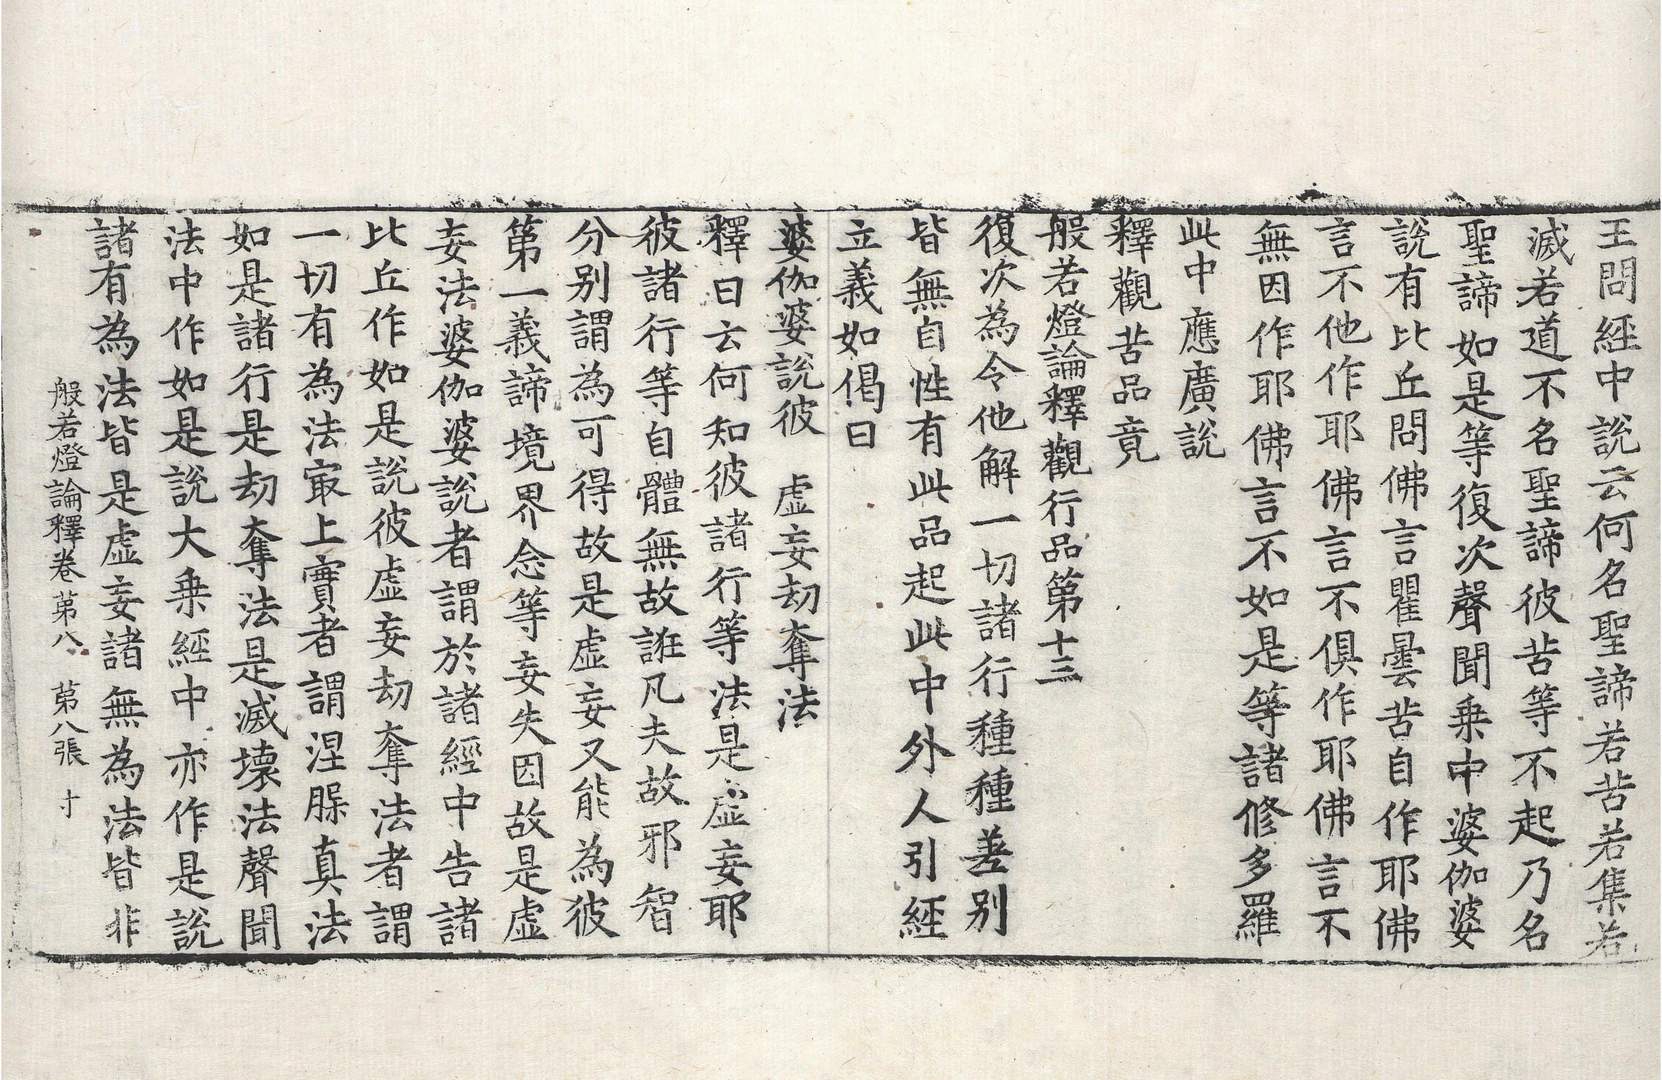 王問經中說云何名聖諦若苦若集若
滅若道不名聖諦彼苦等不起乃名
聖諦如是等復次聲聞乗中婆伽婆
說有比丘問佛言瞿曇苦自作耶佛
言不他作耶佛言不俱作耶佛言不
無因作耶佛言不如是等諸修多羅
此中應廣說
釋觀苦品竟
般若燈論釋觀行品第十三
復次為令他解一切諸行種種差別
皆無自性有此品起此中外人引經
立義如偈曰
婆伽婆說彼　虛妄劫奪法
釋曰云何知彼諸行等法是虛妄耶
彼諸行等自體無故誑凡夫故邪智
分別謂為可得故是虛妄又能為彼
第一義諦境界念等妄失因故是虛
妄法婆伽婆說者謂於諸經中告諸
比丘作如是說彼虛妄劫奪法者謂
一切有為法㝡上實者謂涅槃真法
如是諸行是劫奪法是滅壞法聲聞
法中作如是說大乗經中亦作是說
諸有為法皆是虛妄諸無為法皆非
般若燈論釋卷第八　第八張　寸